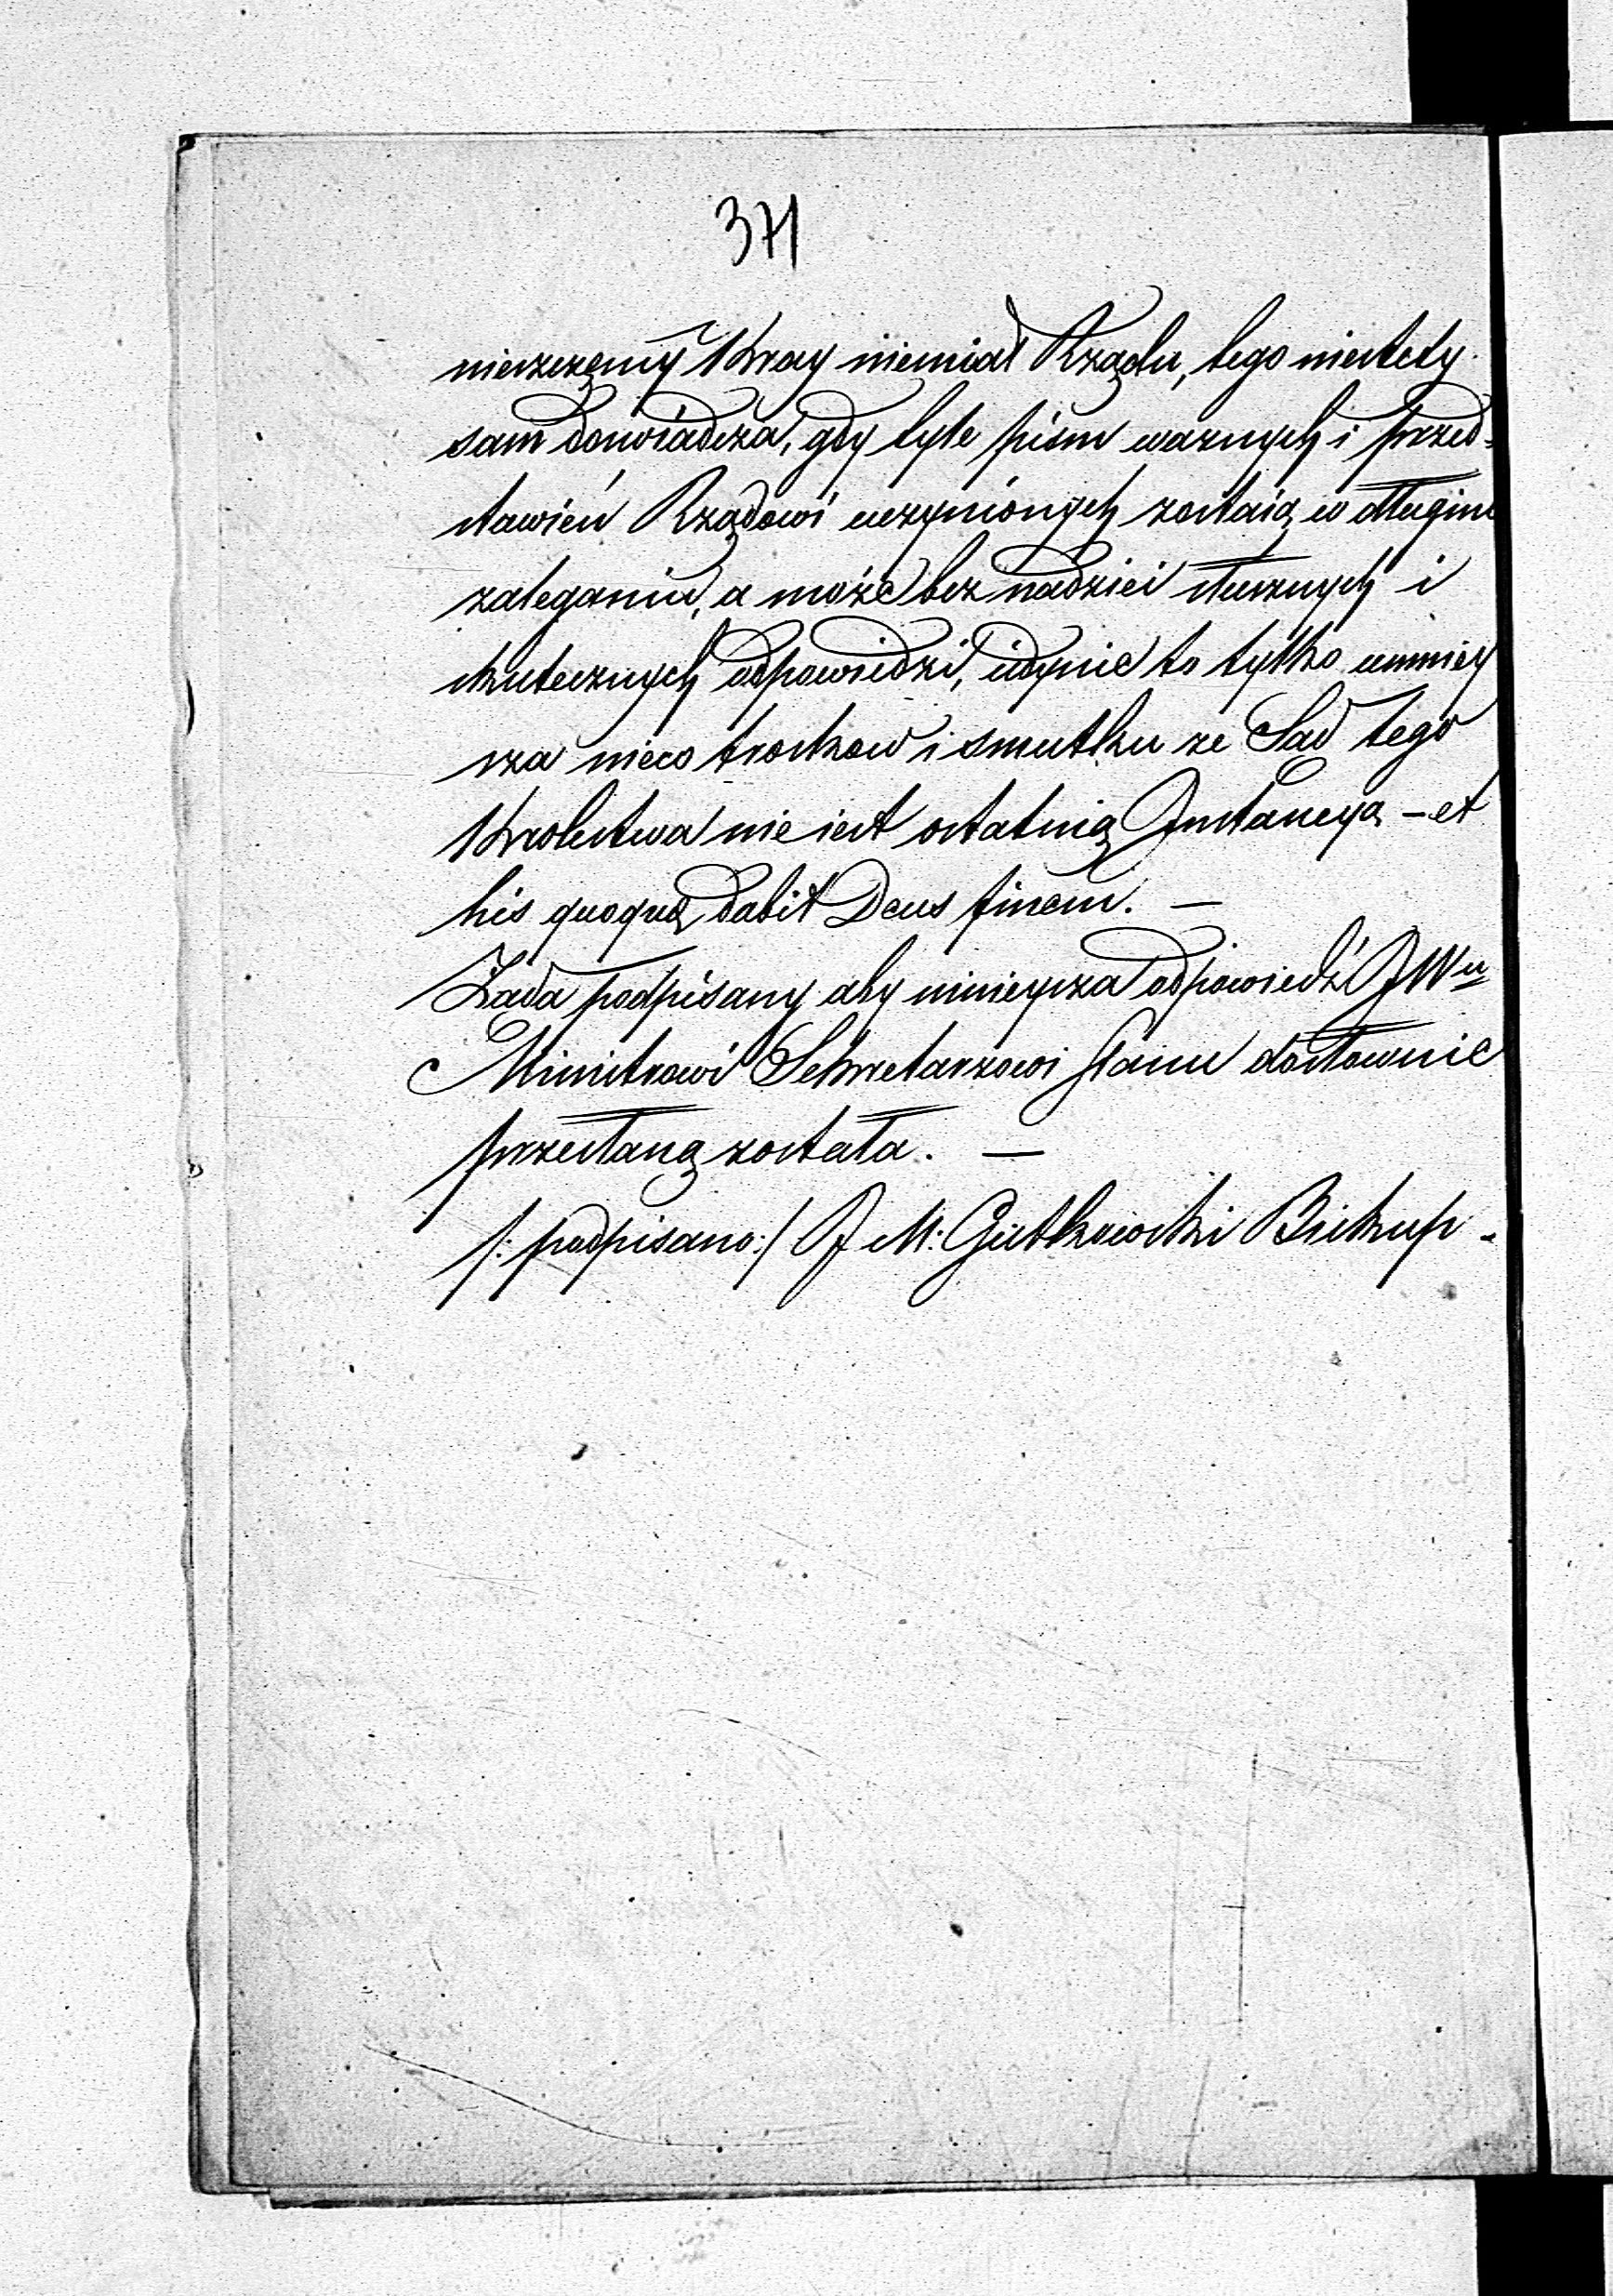 371
nieszczęsny Kray niemiał Rządu, tego niestety
sam doswiadcza, gdy tyle pism waznych i przed-
stawień Rządowi uczynionych zostaią w długim
zaleganiu, a może bez nadziei słusznych i
skutecznych odpowiedzi, iedynie to tylko umniey
sza nieco troskow i smutku ze Sad tego
Krolestwa nie iest ostatnią Instancyą - et
his quoque dabit Deus finem. —
Żada podpisany aby ninieysza odpowiedź JWu
Ministrowi Sekretarzowi Stanu dosłownie
przesłaną została. —
/: podpisano:/ J M: Gutkowski Biskup -